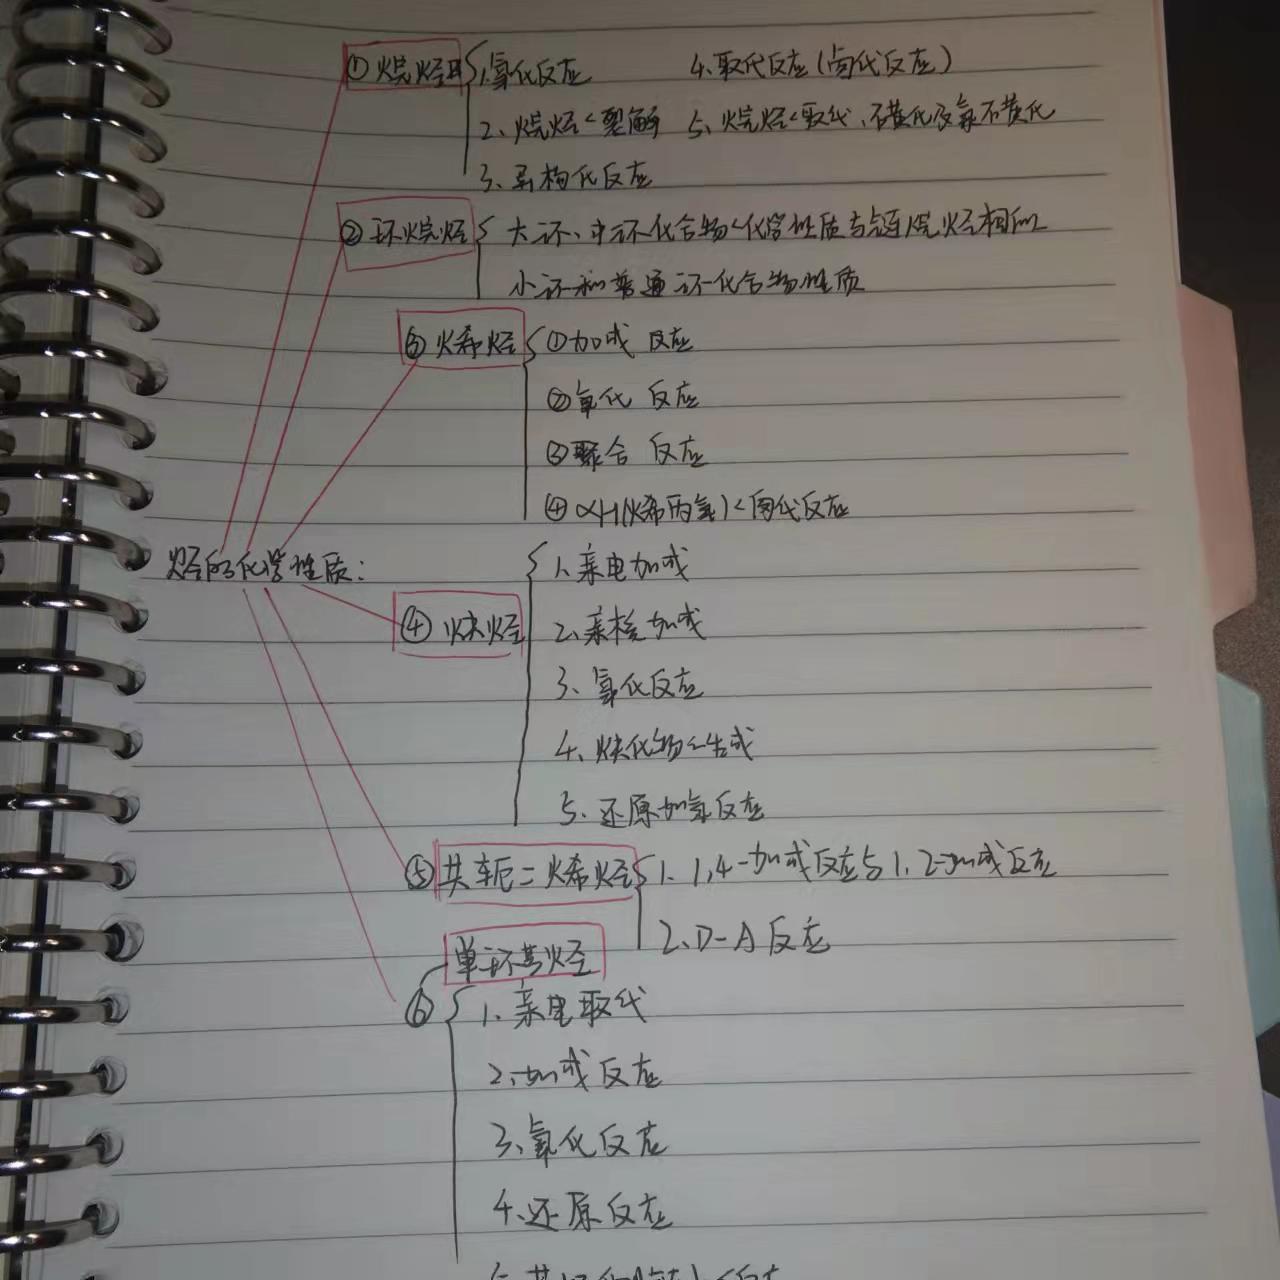 ① 烷烃 1、氧化反应 4、取代反应(卤代反应)
2、烷烃<裂解 5、烷烃<取代、磺化及氯磺化
3、异构化反应
② 环烷烃 大环、中环化合物<化学性质与链烷烃相似
小环和普通环化合物性质
③ 烯烃 ①加成 反应
②氧化 反应
③聚合 反应
④αH(烯丙氢)<卤代反应
烃的化学性质:
1、亲电加成
④ 炔烃 2、亲核加成
3、氧化反应
4、炔化物<生成
5、还原加氢反应
⑤ 共轭二烯烃 1、1,4-加成反应与1,2-加成反应
2、D-A反应
单环芳烃
⑥ 1、亲电取代
2、加成反应
3、氧化反应
4、还原反应